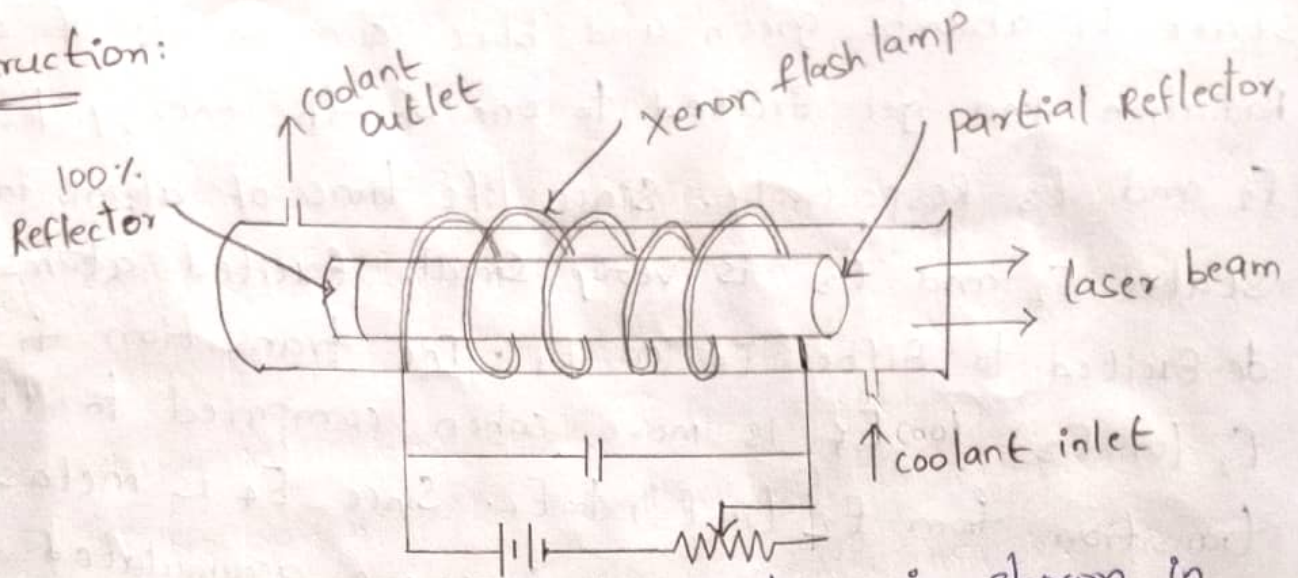 ruction:
coolant
outlet
xenon flash lamp
partial Reflector
100%
Reflector
laser beam
coolant inlet
is shown in